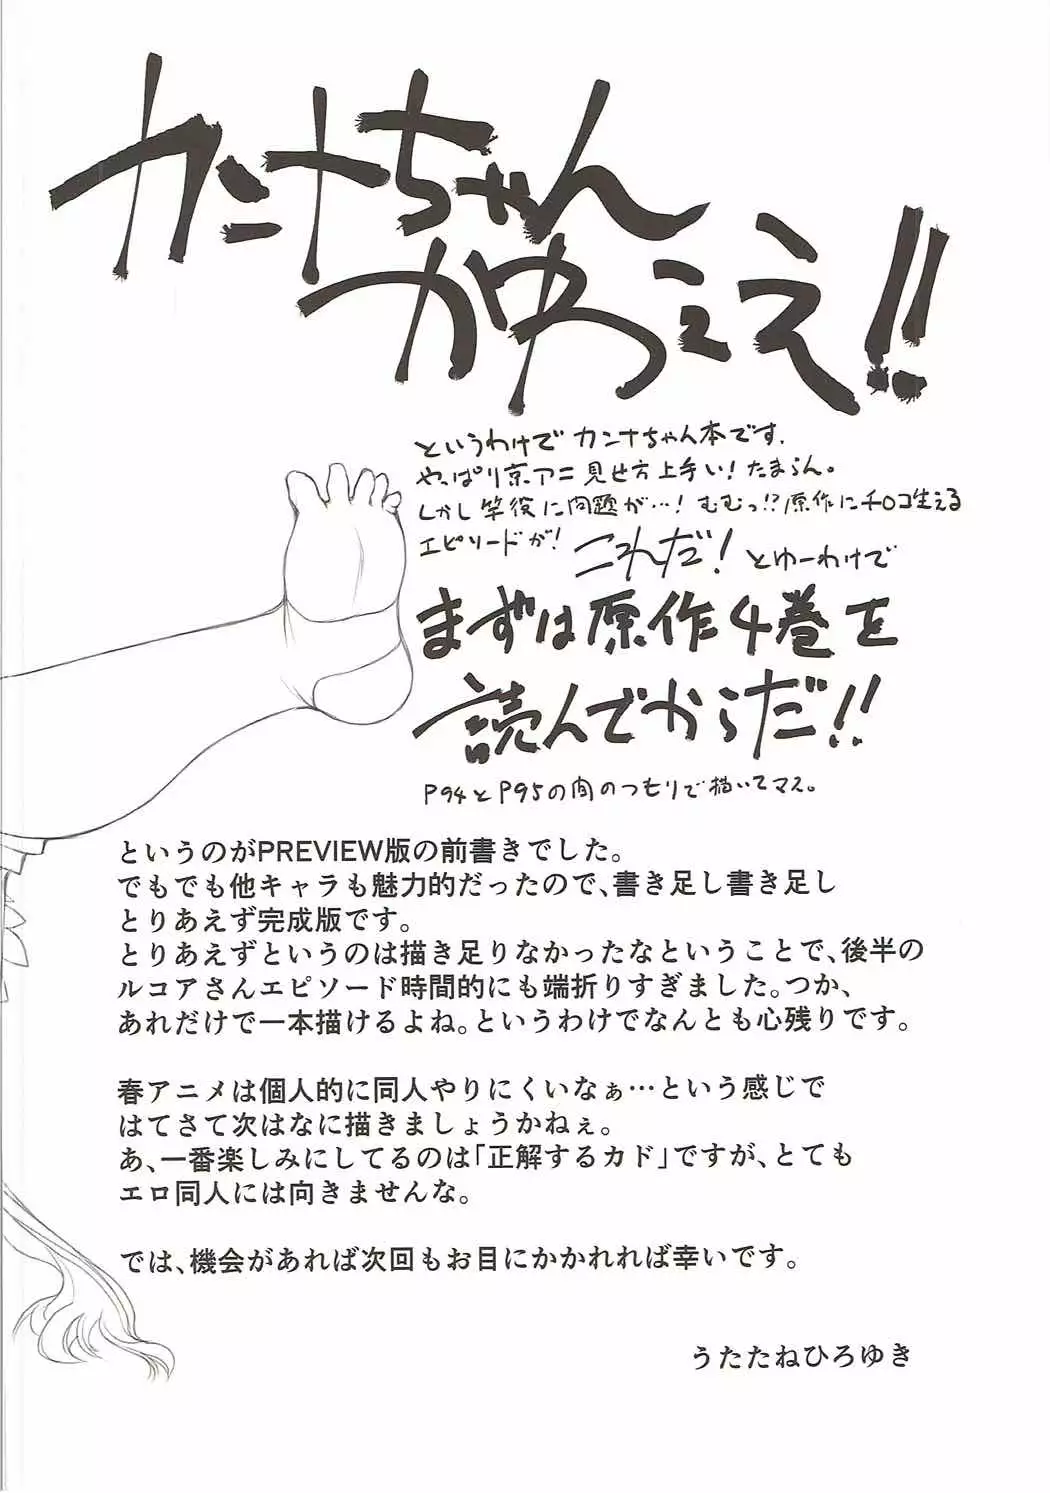 カンナちゃん
かゆつええ!!
というわけで カンナちゃん本です.
やっぱり京アニ 見せ方上手い! たまらん。
しかし竿役に問題が…! むむっ!? 原作にチロコ生える
エピソードが! これだ! とゆーわけで
まずは原作4巻を
読んでからだ!!
P94とP95の間のつもりで描いてマス。
というのがPREVIEW版の前書きでした。
でもでも他キャラも魅力的だったので、書き足し書き足し
とりあえず完成版です。
とりあえずというのは描き足りなかったなということで、後半の
ルコアさんエピソード時間的にも端折りすぎました。つか、
あれだけで一本描けるよね。というわけでなんとも心残りです。
春アニメは個人的に同人やりにくいなぁ…という感じで
はてさて次はなに描きましょうかねぇ。
あ、一番楽しみにしてるのは「正解するカド」ですが、とても
エロ同人には向きませんな。
では、機会があれば次回もお目にかかれれば幸いです。
うたたねひろゆき